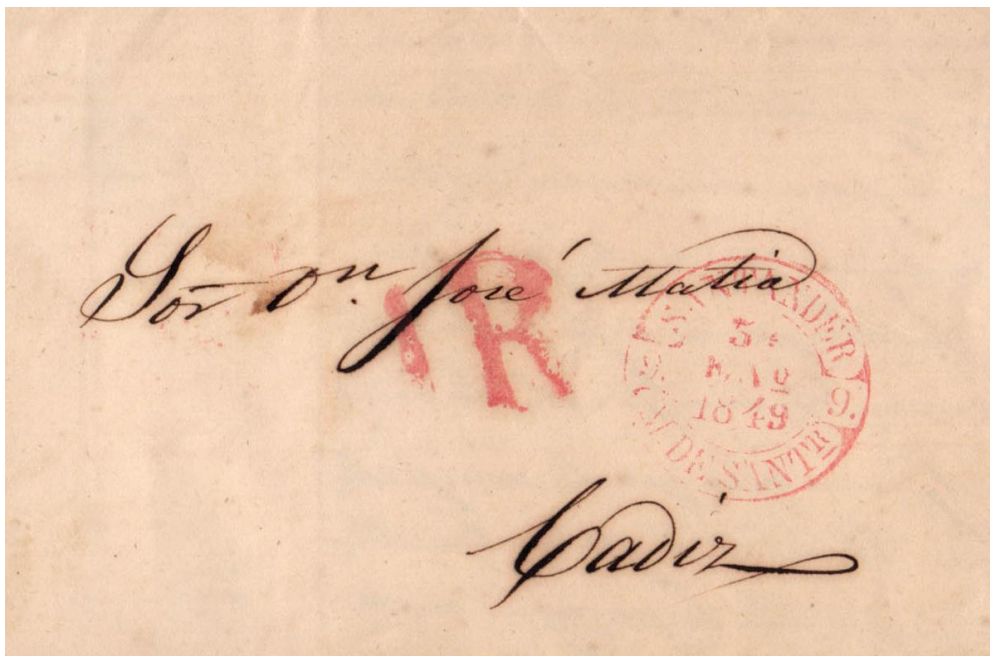 Sor Dn. José Matia
1R
SANTANDER
5
MAYO
1849
9.
M. DE SANTR
Cadiz